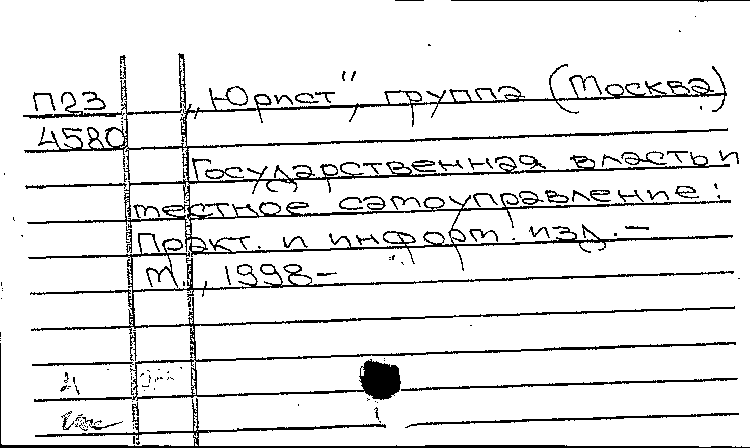 П23 „Юрист", группа (Москва)
4580
Государственная власть и
местное самоуправление:
Практ. и информ. изд. –
М., 1998–